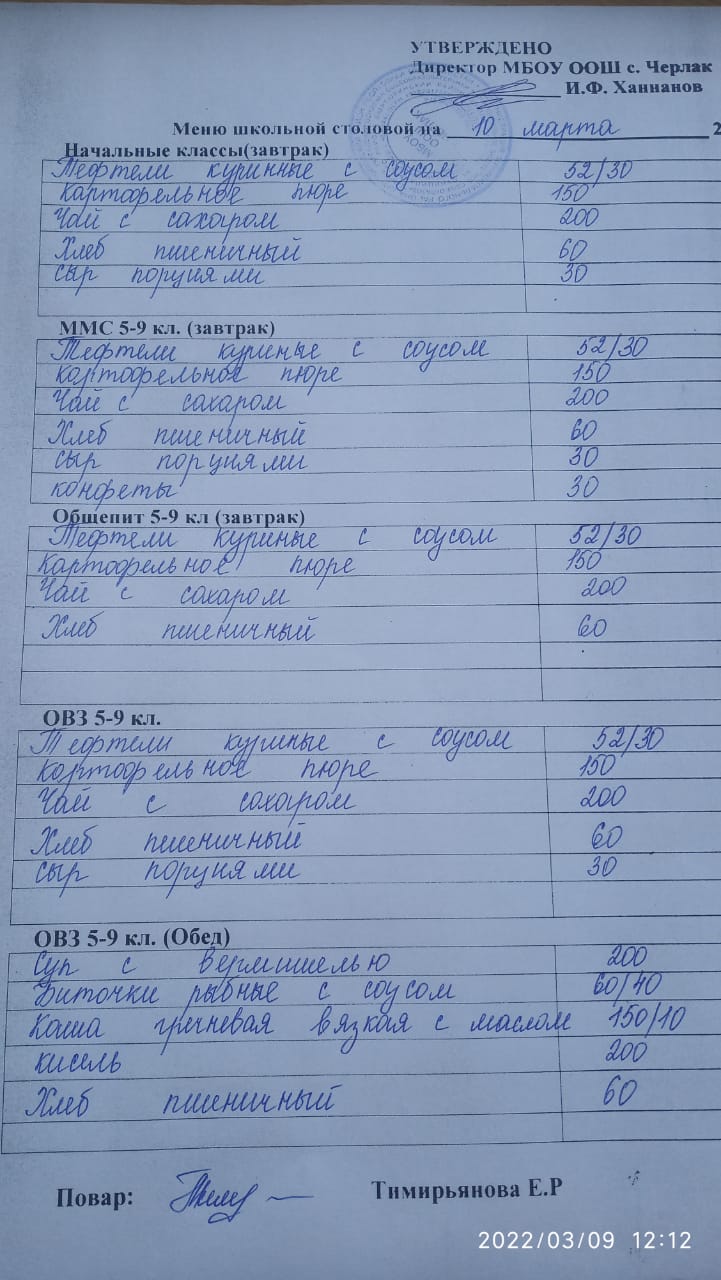 УТВЕРЖДЕНО
Директор МБОУ ООШ с. Черлак
И.Ф. Ханнанов
Меню школьной столовой на 10 марта 2
Начальные классы(завтрак)
Тефтели куринные с соусом 52/30
Картофельное пюре 150
Чай с сахаром 200
Хлеб пшеничный 60
сыр порциями 30
ММС 5-9 кл. (завтрак)
Тефтели куриные с соусом 52/30
картофельное пюре 150
Чай с сахаром 200
Хлеб пшеничный 60
сыр порциями 30
конфеты 30
Общепит 5-9 кл (завтрак)
Тефтели куриные с соусом 52/30
Картофельное пюре 150
Чай с сахаром 200
Хлеб пшеничный 60
ОВЗ 5-9 кл.
Тефтели куриные с соусом 52/30
Картофельное пюре 150
Чай с сахаром 200
Хлеб пшеничный 60
сыр порциями 30
ОВЗ 5-9 кл. (Обед)
Суп с вермишелью 200
Биточки рыбные с соусом 60/40
Каша гречневая вязкая с маслом 150/10
кисель 200
Хлеб пшеничный 60
Повар: Тимирьянова Е.Р
2022/03/09 12:12